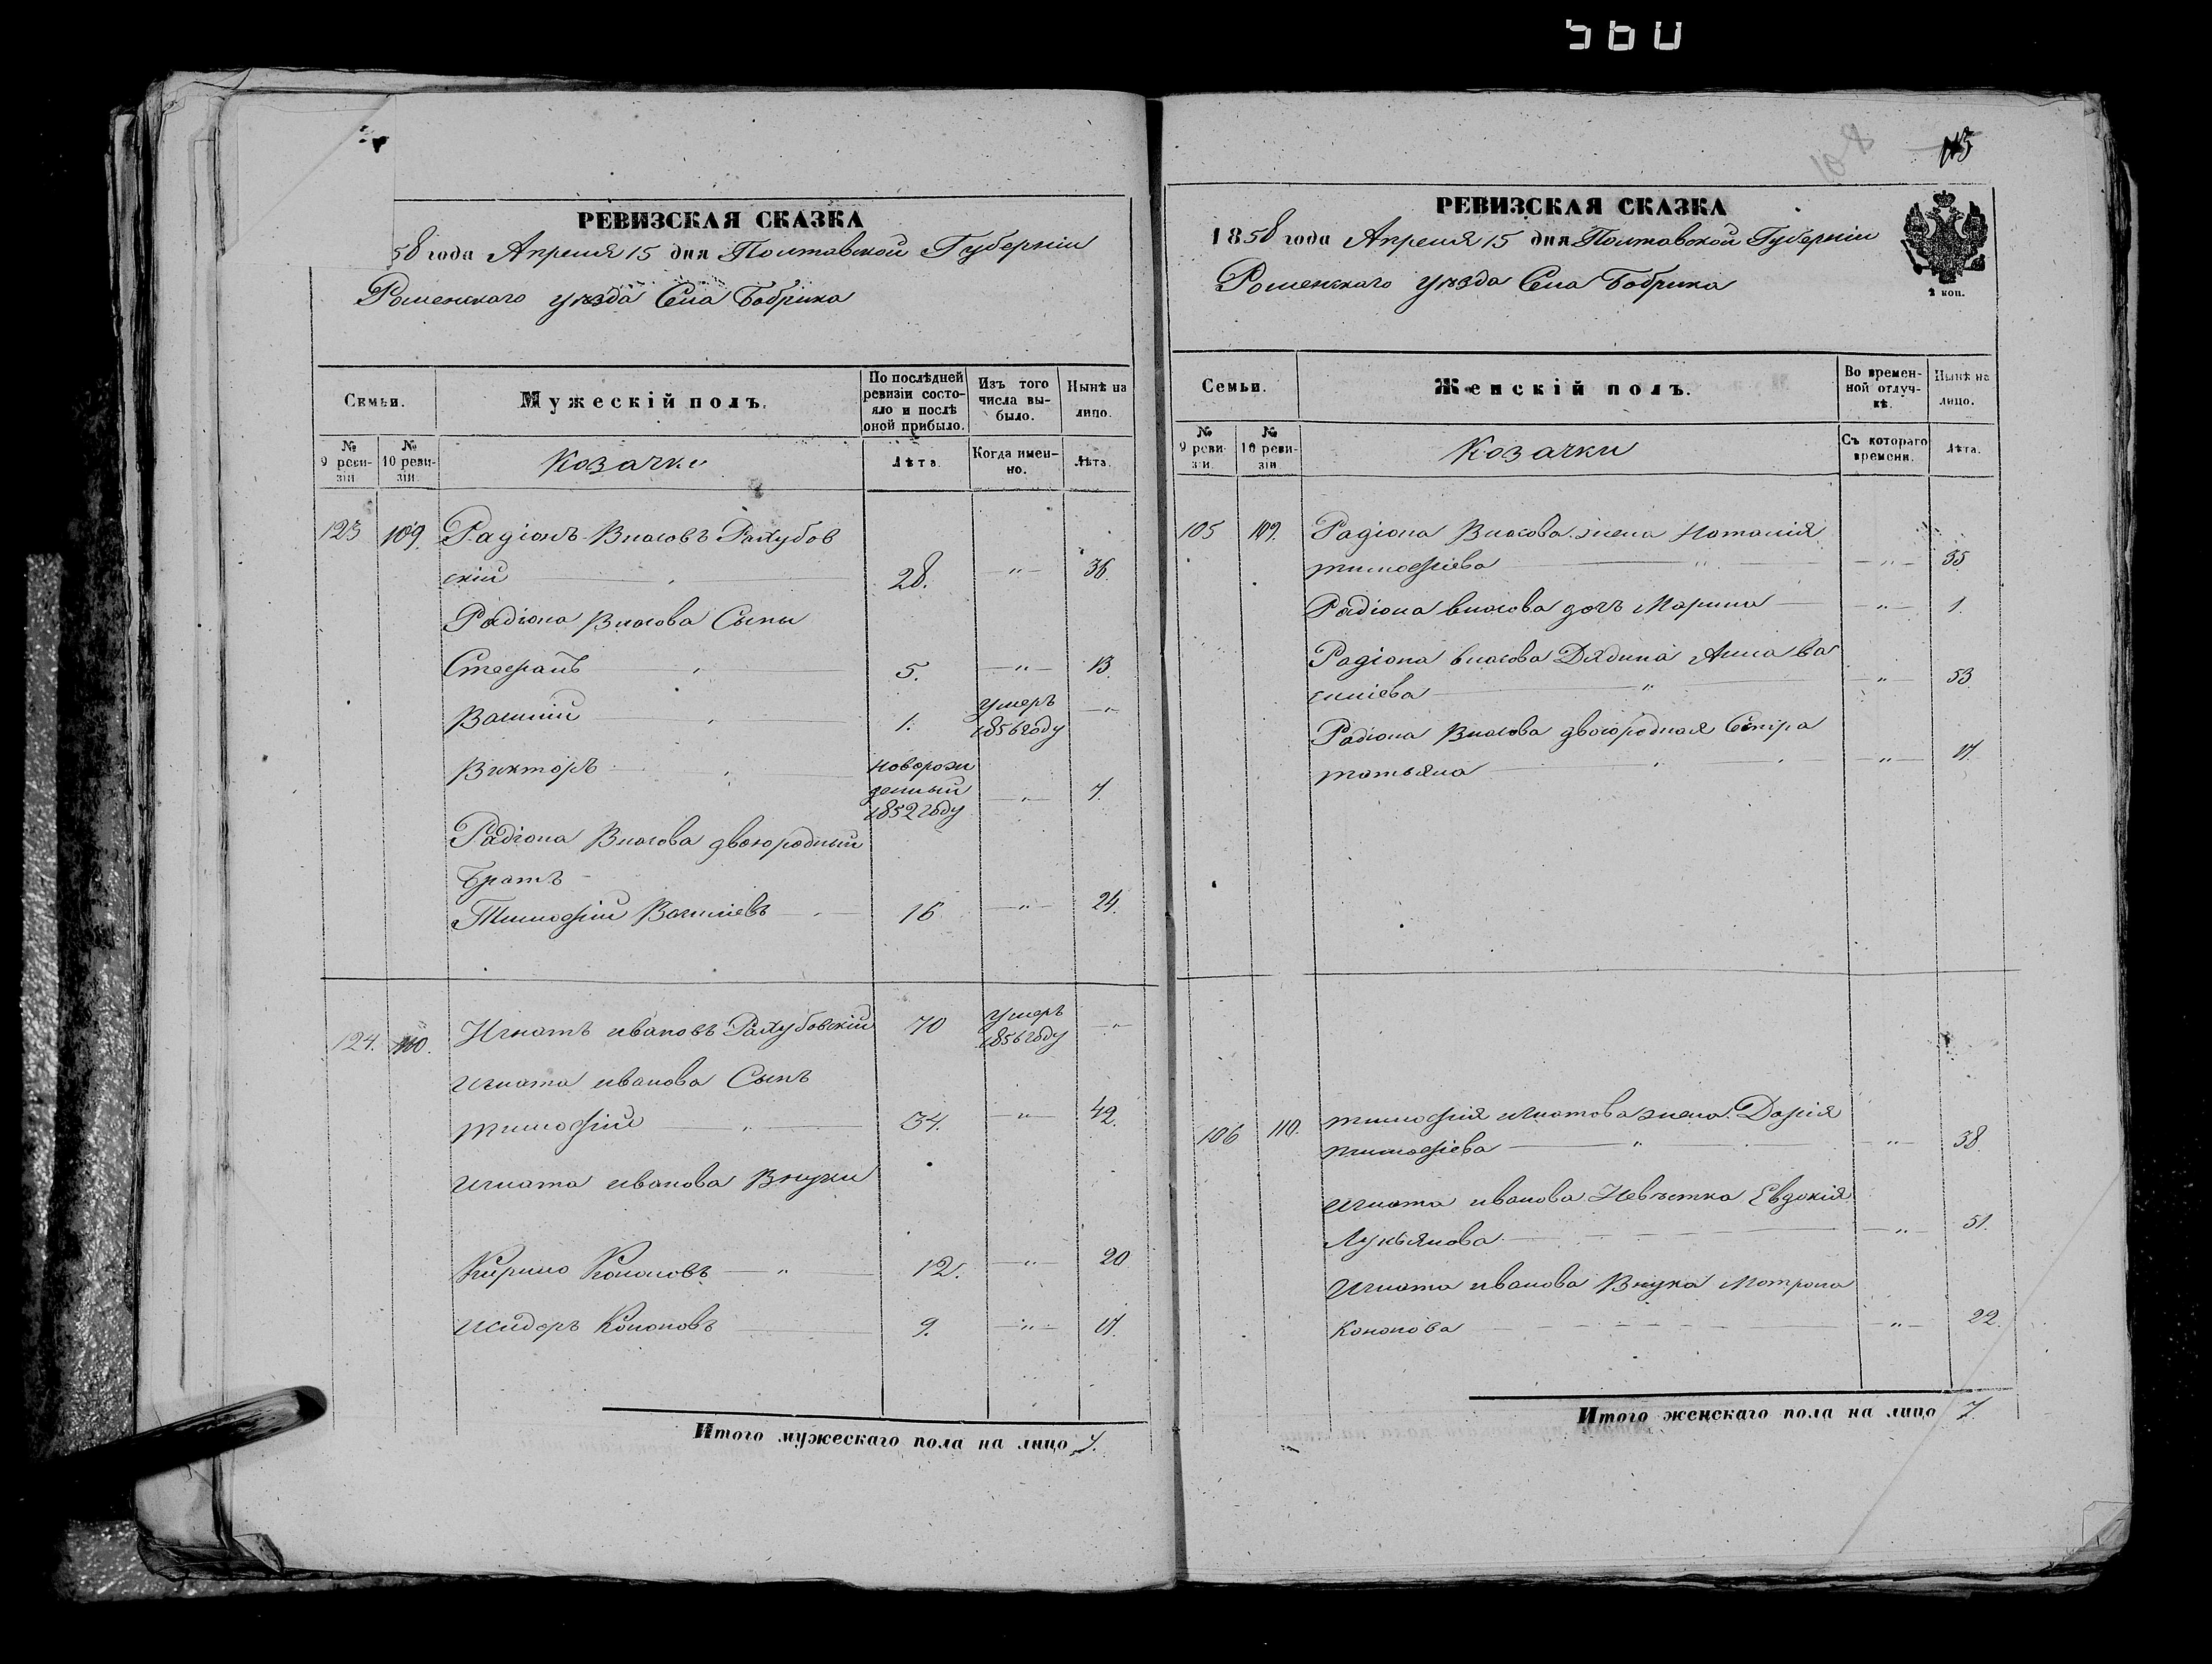 560
108
115
РЕВИЗСКАЯ СКАЗКА
58 года Апреля 15 дня Полтавской Губерніи
Роменскаго уѣзда Села Бобрика
Семьи.
Мужескій полъ.
По послѣдней ревизіи состояло и послѣ оной прибыло.
Изъ того числа выбыло.
Нынѣ на лицо.
№ 9 ревизіи
№ 10 ревизіи
Козачки
Лѣта.
Когда именно.
Лѣта.
123 109. Радіонъ Власовъ Рахубов
скій 28. — " — 36.
Радіона Власова Сыны
Стефанъ " 5. — " — 13.
Василій " 1. умеръ 1856 году — " —
Викторъ " новорож
денный
1852 году — " — 7.
Радіона Власова двоюродный
Братъ
Тимофій Василіевъ 16 — " — 24.
124. 110. Игнатъ ивановъ Рахубовскій 70 умеръ 1856 году — " —
игната иванова Сынъ
тимофій " 34. — " — 42.
игната иванова Внуки
Кирило Кононовъ — " — 12. — " — 20
исидоръ Кононовъ 9. — " — 17.
Итого мужескаго пола на лицо 7.
РЕВИЗСКАЯ СКАЗКА
1858 года Апреля 15 дня Полтавской Губерніи
Роменскаго уѣзда Села Бобрика
2 коп.
Семьи.
Женскій полъ.
Во временной отлучкѣ.
Нынѣ на лицо.
№ 9 ревизіи.
№ 10 ревизіи
Козачки
Съ котораго времени.
Лѣта.
105 109. Радіона Власова жена Наталія
тимофіева " — " — 35
Радіона власова дочъ Марина — " — 1.
Радіона власова Дядина Анна Ва
силіева " — " — 53
Радіона Власова двоюродная Сестра
татьяна " — " — 17.
106 110. тимофія игнатова жена Дарія
тимофіева " — " — 38.
игната иванова Невѣстка Евдокія
Лукьянова — " — 51.
игната иванова Внука Мотрона
Кононова — " — 22.
Итого женскаго пола на лицо 7.